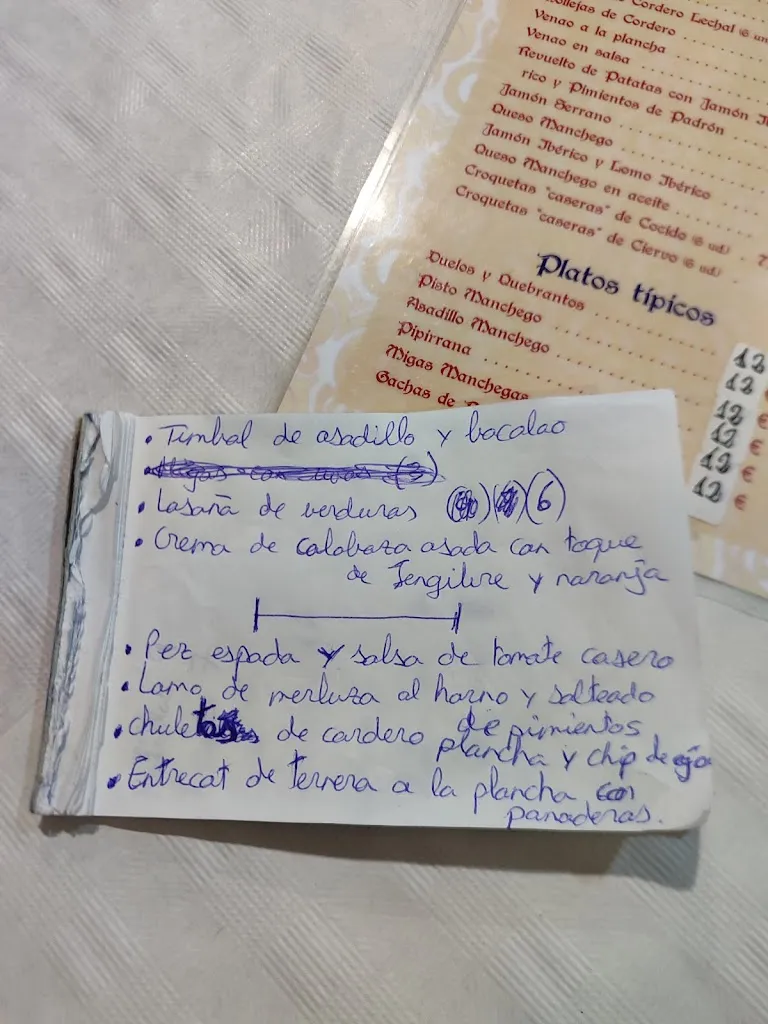 Cordero Lechal (6 un
ollejas de Cordero
Venao a la plancha
Venao en salsa
Revuelto de Patatas con Jamón I
rico y Pimientos de Padrón
Jamón Serrano
Queso Manchego
Jamón Ibérico y Lomo Ibérico
Queso Manchego en aceite
Croquetas "caseras" de Cocido (6 ud)
Croquetas "caseras" de Ciervo (6 ud)
Platos típicos
Duelos y Quebrantos 12
Pisto Manchego 12 €
Asadillo Manchego 12 €
Pipirrana 12 €
Migas Manchegas 12 €
Gachas de 12 €
• Timbal de asadillo y bacalao
• Lasaña de verduras (6)
• Crema de calabaza asada con toque
de Jengibre y naranja
• Pez espada y salsa de tomate casero
• Lomo de merluza al horno y salteado
de pimientos
• chuletas de cordero plancha y chip de ajo
• Entrecot de ternera a la plancha con
panaderas.